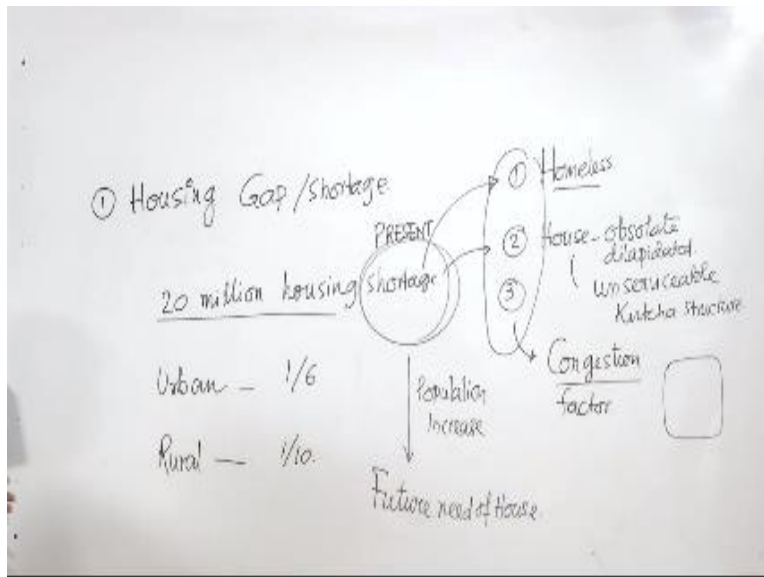 ① Housing Gap/Shortage
PRESENT
20 million housing shortage
Urban — 1/6
Rural — 1/10.
Population
Increase
Future need of House
① Homeless
② House - obsolate
dilapidated
unserviceable
Kutcha Structure
③
Congestion
factor